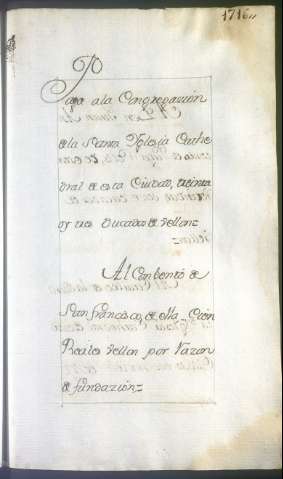 1716
Paga a la Congregación
de la Santa Yglesia Cathe
dral de esta Ciudad, treinta
y tres Ducados de Vellon=
Al Conbento de
San Francisco, de ella, Cien
Reales Vellon por Razon
de fundazión=